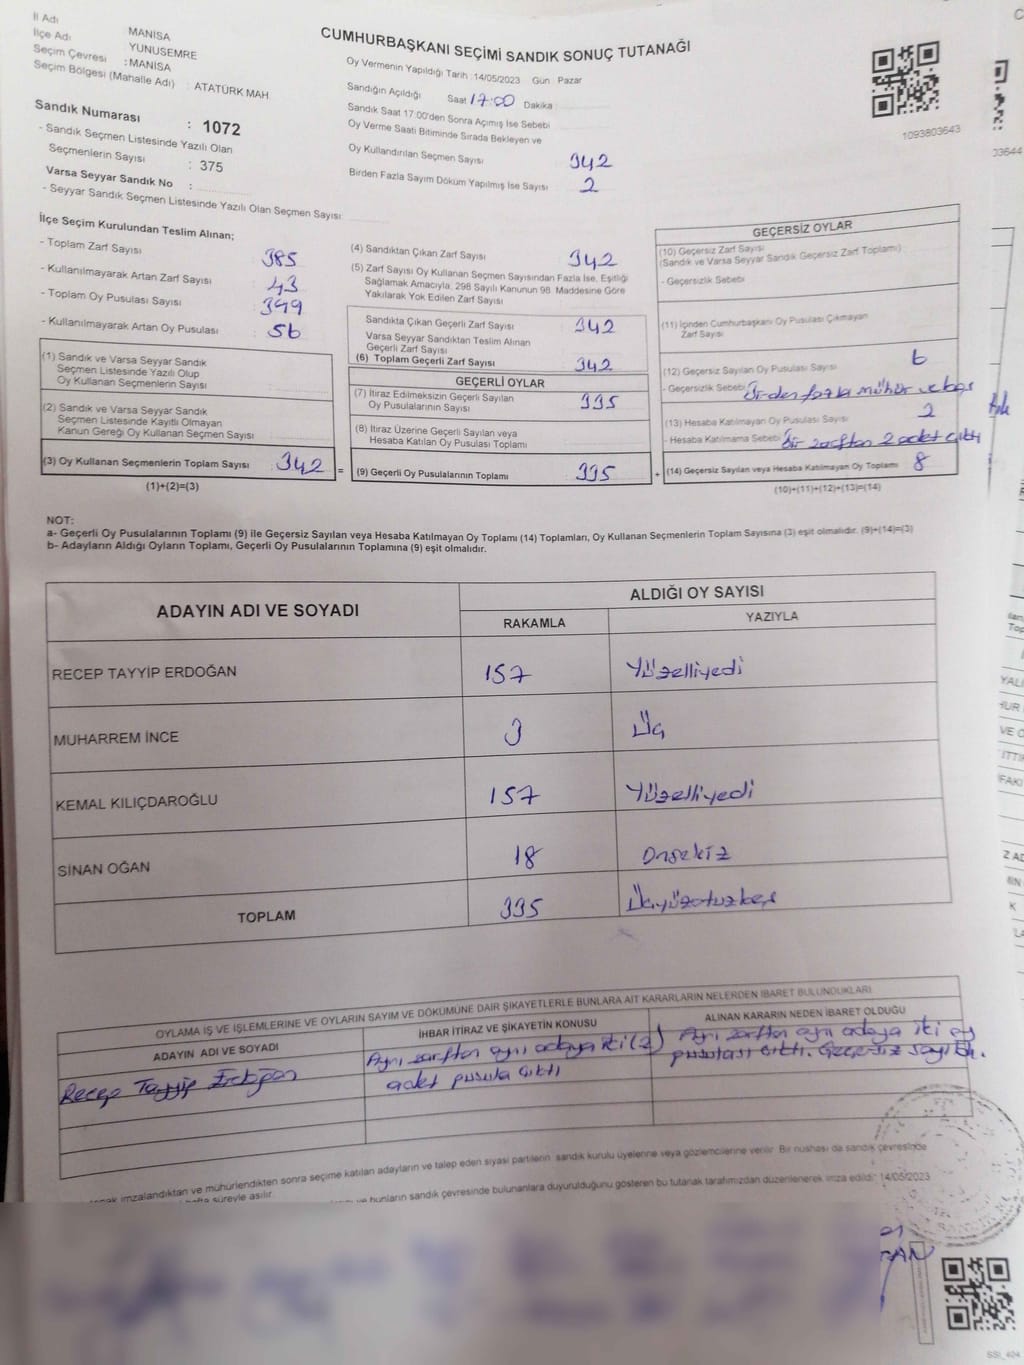 İl Adı MANİSA
İlçe Adı YUNUSEMRE
Seçim Çevresi : MANİSA
Seçim Bölgesi (Mahalle Adı) : ATATÜRK MAH
Sandık Numarası : 1072
- Sandık Seçmen Listesinde Yazılı Olan
Seçmenlerin Sayısı : 375
Varsa Seyyar Sandık No :
- Seyyar Sandık Seçmen Listesinde Yazılı Olan Seçmen Sayısı:
CUMHURBAŞKANI SEÇİMİ SANDIK SONUÇ TUTANAĞI
Oy Vermenin Yapıldığı Tarih : 14/05/2023 Gün : Pazar
Sandığın Açıldığı Saat 17:00 Dakika :
Sandık Saat 17.00'den Sonra Açımış İse Sebebi
Oy Verme Saati Bitiminde Sırada Bekleyen ve
Oy Kullandırılan Seçmen Sayısı 342
Birden Fazla Sayım Döküm Yapılmış İse Sayısı 2
1093803643
03644
İlçe Seçim Kurulundan Teslim Alınan;
- Toplam Zarf Sayısı : 385
- Kullanılmayarak Artan Zarf Sayısı : 43
- Toplam Oy Pusulası Sayısı : 399
- Kullanılmayarak Artan Oy Pusulası : 56
(1) Sandık ve Varsa Seyyar Sandık
Seçmen Listesinde Yazılı Olup
Oy Kullanan Seçmenlerin Sayısı
(2) Sandık ve Varsa Seyyar Sandık
Seçmen Listesinde Kayıtlı Olmayan
Kanun Gereği Oy Kullanan Seçmen Sayısı
(3) Oy Kullanan Seçmenlerin Toplam Sayısı 342 =
(1)+(2)=(3)
(4) Sandıktan Çıkan Zarf Sayısı 342
(5) Zarf Sayısı Oy Kullanan Seçmen Sayısından Fazla İse, Eşitliği
Sağlamak Amacıyla, 298 Sayılı Kanunun 98. Maddesine Göre
Yakılarak Yok Edilen Zarf Sayısı
Sandıkta Çıkan Geçerli Zarf Sayısı 342
Varsa Seyyar Sandıktan Teslim Alınan
Geçerli Zarf Sayısı
(6) Toplam Geçerli Zarf Sayısı 342
GEÇERLİ OYLAR
(7) İtiraz Edilmeksizin Geçerli Sayılan
Oy Pusulalarının Sayısı 335
(8) İtiraz Üzerine Geçerli Sayılan veya
Hesaba Katılan Oy Pusulası Toplamı
(9) Geçerli Oy Pusulalarının Toplamı 335 +
GEÇERSİZ OYLAR
(10) Geçersiz Zarf Sayısı
(Sandık ve Varsa Seyyar Sandık Geçersiz Zarf Toplamı)
- Geçersizlik Sebebi
(11) İçinden Cumhurbaşkanı Oy Pusulası Çıkmayan
Zarf Sayısı
(12) Geçersiz Sayılan Oy Pusulası Sayısı 6
- Geçersizlik Sebebi Birden fazla mühür ve boş
(13) Hesaba Katılmayan Oy Pusulası Sayısı 2
- Hesaba Katılmama Sebebi Bir zarftan 2 adet çıktı
(14) Geçersiz Sayılan veya Hesaba Katılmayan Oy Toplamı 8
(10)+(11)+(12)+(13)=(14)
NOT:
a- Geçerli Oy Pusulalarının Toplamı (9) ile Geçersiz Sayılan veya Hesaba Katılmayan Oy Toplamı (14) Toplamları, Oy Kullanan Seçmenlerin Toplam Sayısına (3) eşit olmalıdır. (9)+(14)=(3)
b- Adayların Aldığı Oyların Toplamı, Geçerli Oy Pusulalarının Toplamına (9) eşit olmalıdır.
ADAYIN ADI VE SOYADI ALDIĞI OY SAYISI
RAKAMLA YAZIYLA
RECEP TAYYİP ERDOĞAN 157 Yüzelliyedi
MUHARREM İNCE 3 Üç
KEMAL KILIÇDAROĞLU 157 Yüzelliyedi
SİNAN OĞAN 18 Onsekiz
TOPLAM 335 Üçyüzotuzbeş
OYLAMA İŞ VE İŞLEMLERİNE VE OYLARIN SAYIM VE DÖKÜMÜNE DAİR ŞİKAYETLERLE BUNLARA AİT KARARLARIN NELERDEN İBARET BULUNDUKLARI
ADAYIN ADI VE SOYADI İHBAR İTİRAZ VE ŞİKAYETİN KONUSU ALINAN KARARIN NEDEN İBARET OLDUĞU
Recep Tayyip Erdoğan Aynı zarftan aynı adaya iki (2) adet pusula çıktı Aynı zarftan aynı adaya iki oy pusulası çıktı. Geçersiz sayıldı.
imzalandıktan ve mühürlendikten sonra seçime katılan adayların ve talep eden siyasi partilerin sandık kurulu üyelerine veya gözlemcilerine verilir. Bir nüshası da sandık çevresinde
hafta süreyle asılır.
ve bunların sandık çevresinde bulunanlara duyurulduğunu gösteren bu tutanak tarafımızdan düzenlenerek imza edildi. 14/05/2023